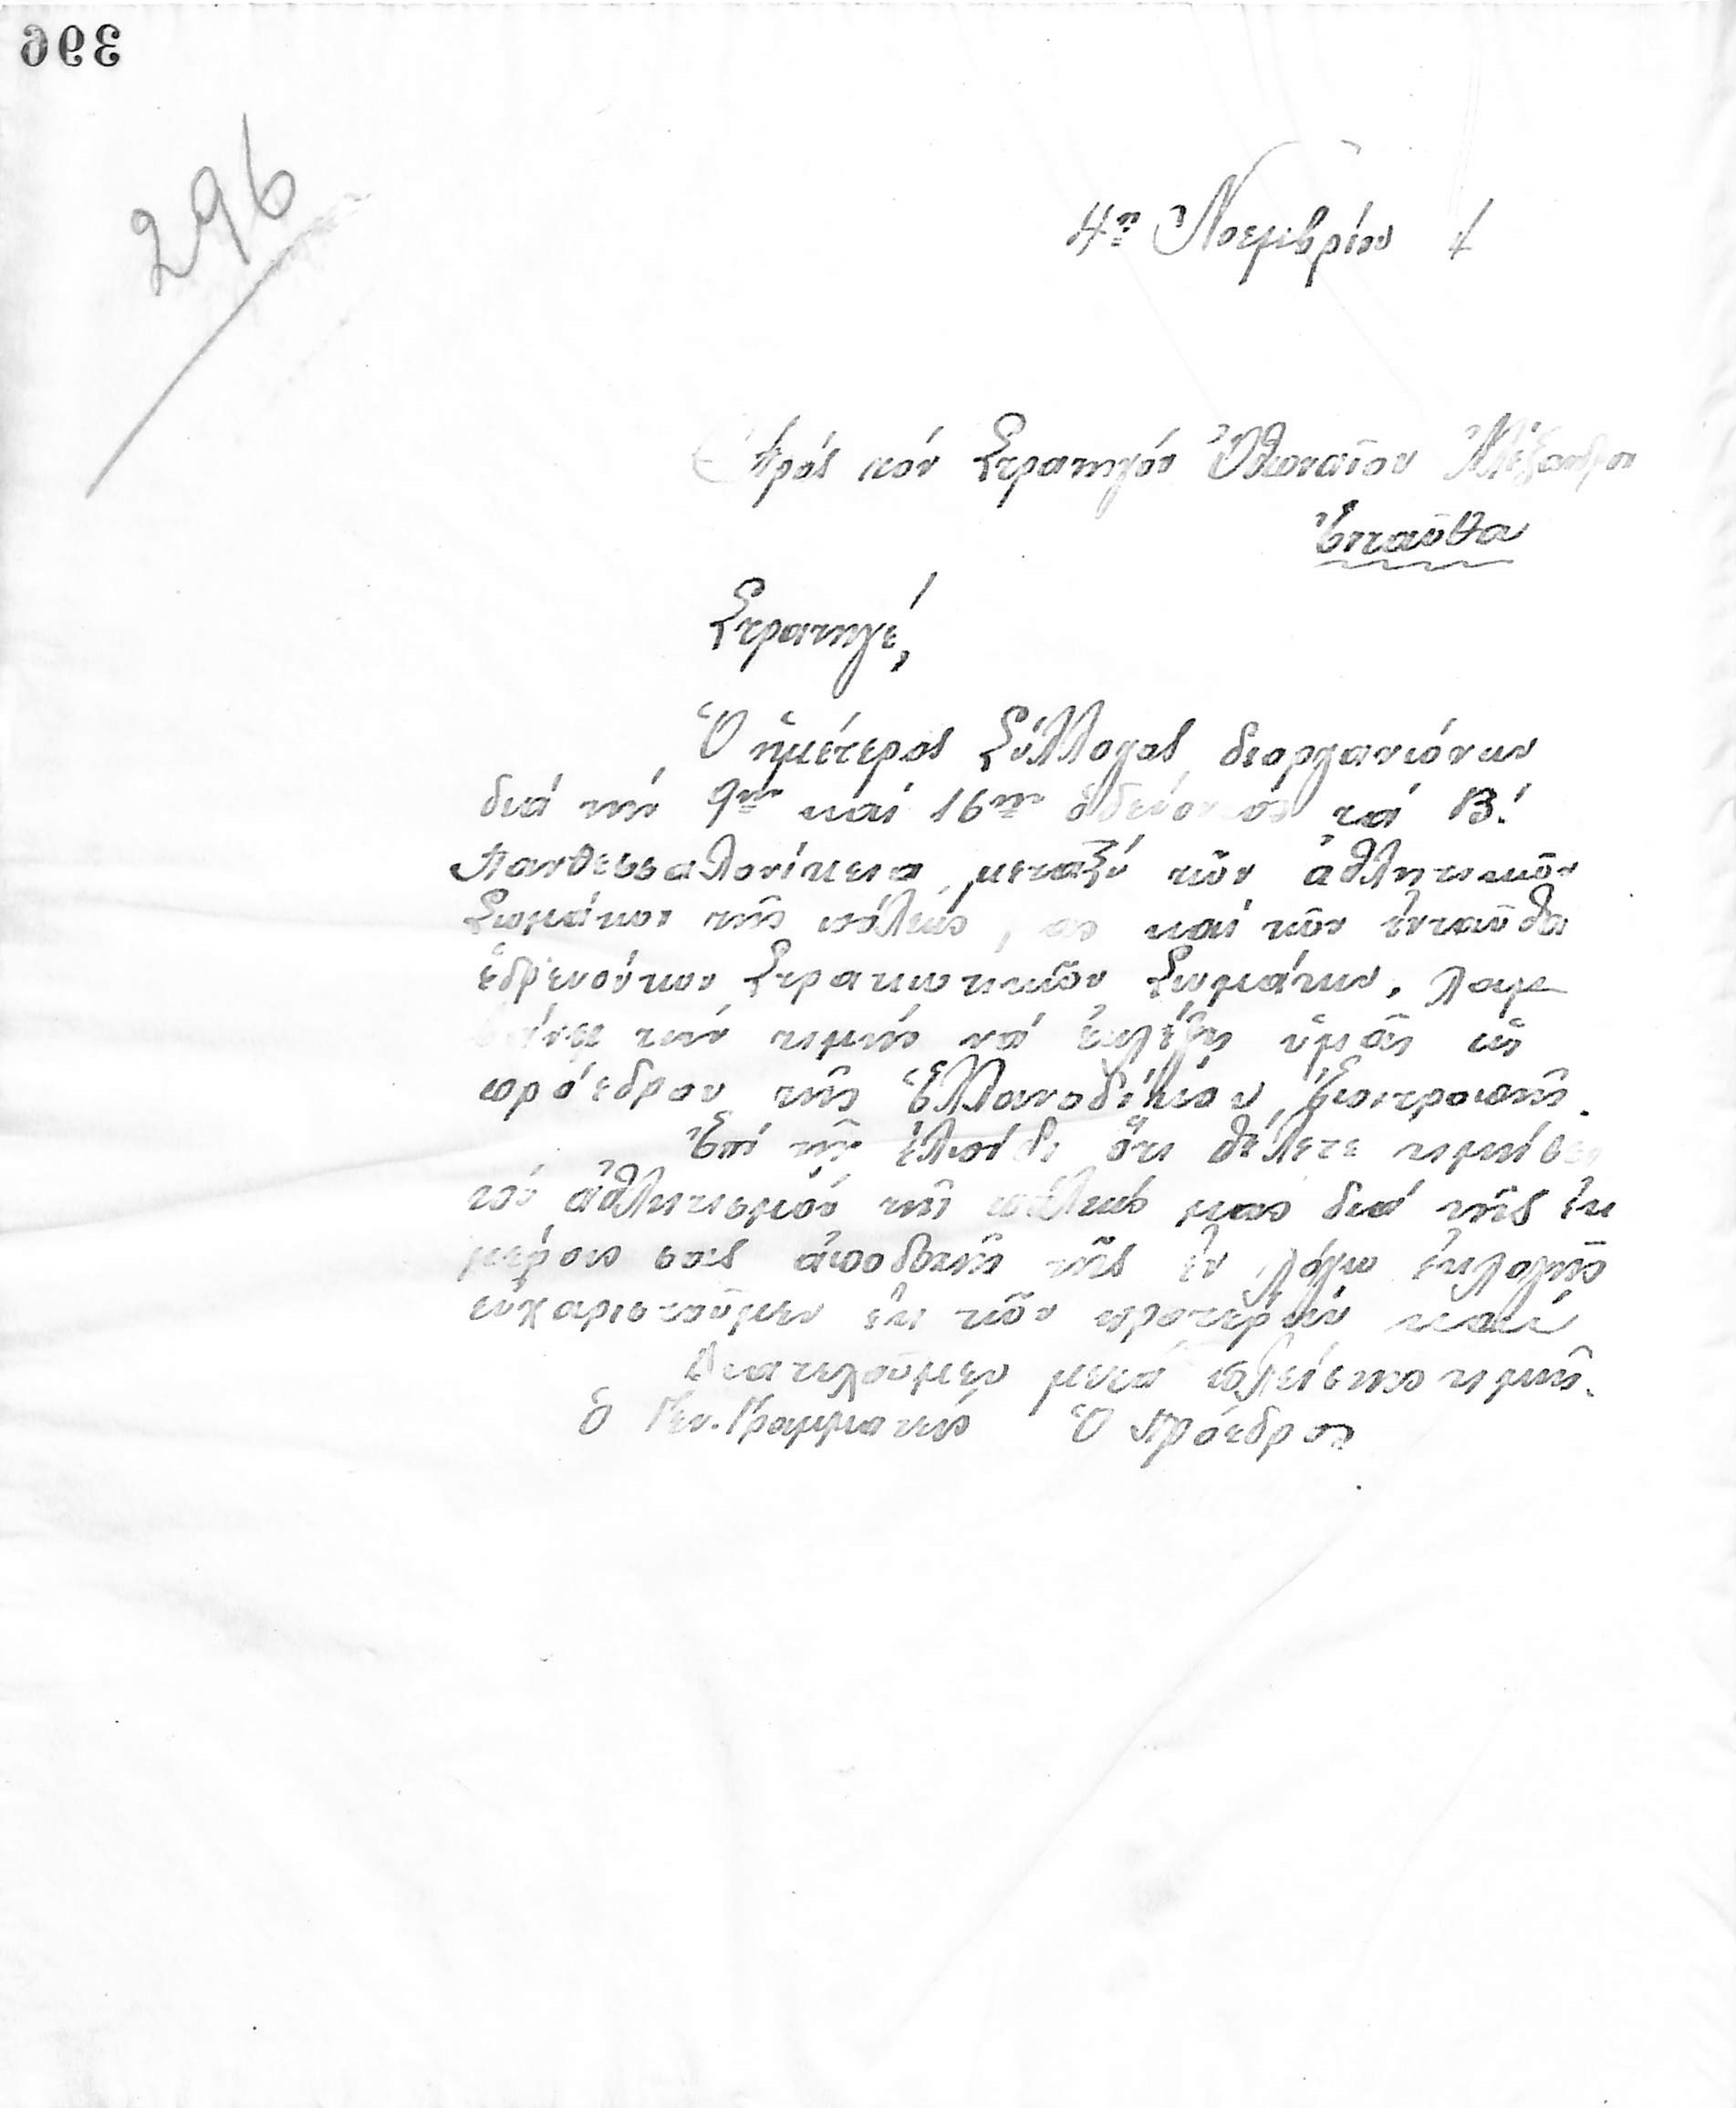 396
296
4η Νοεμβρίου 4
Πρός τόν Στρατηγόν Ὀθωναῖον Ἀλέξανδρον
Ἐνταῦθα
Στρατηγέ,
Ὁ ἡμέτερος Σύλλογος διοργανώνων
διά τήν 9ην καί 16ην ὁδεύοντος τά Β!
Πανθεσσαλονίκεια μεταξύ τῶν ἀθλητικῶν
Σωμάτων τῆς πόλεως, ως καί τῶν ἐνταῦθα
ἑδρευόντων Στρατιωτικῶν Σωμάτων, λαμ
βάνει τήν τιμήν νά ἐκλέξῃ ὑμᾶς ὡς
πρόεδρον τῆς Ἑλλανοδίκου Ἐπιτροπῆς.
Ἐπί τῇ ἐλπίδι ὅτι θέλετε τιμήσει
τόν ἀθλητισμόν τῆς πόλεώς μας διά τῆς ἐκ
μέρους σας ἀποδοχῆς τῆς ἐν λόγῳ ἐκλογῆς
εὐχαριστοῦμεν ἐκ τῶν προτέρων καί
Διατελοῦμεν μετά πλείστης τιμῆς.
Ὁ Γεν. Γραμματεύς Ὁ Πρόεδρος